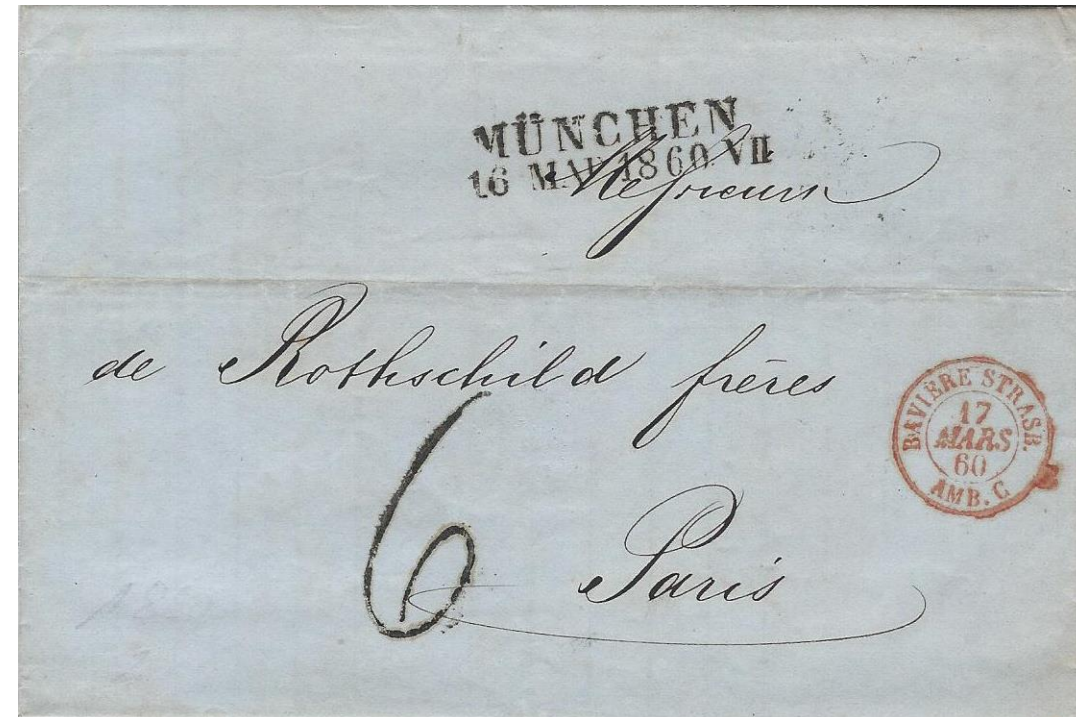 MÜNCHEN
16 MAR 1860 VII
Messieurs
de Rothschild frères
6
Paris
BAVIÈRE STRASB.
17
MARS
60
AMB. C